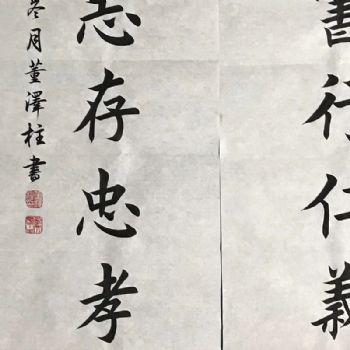 書行仁義
志存忠孝
冬月董澤柱書